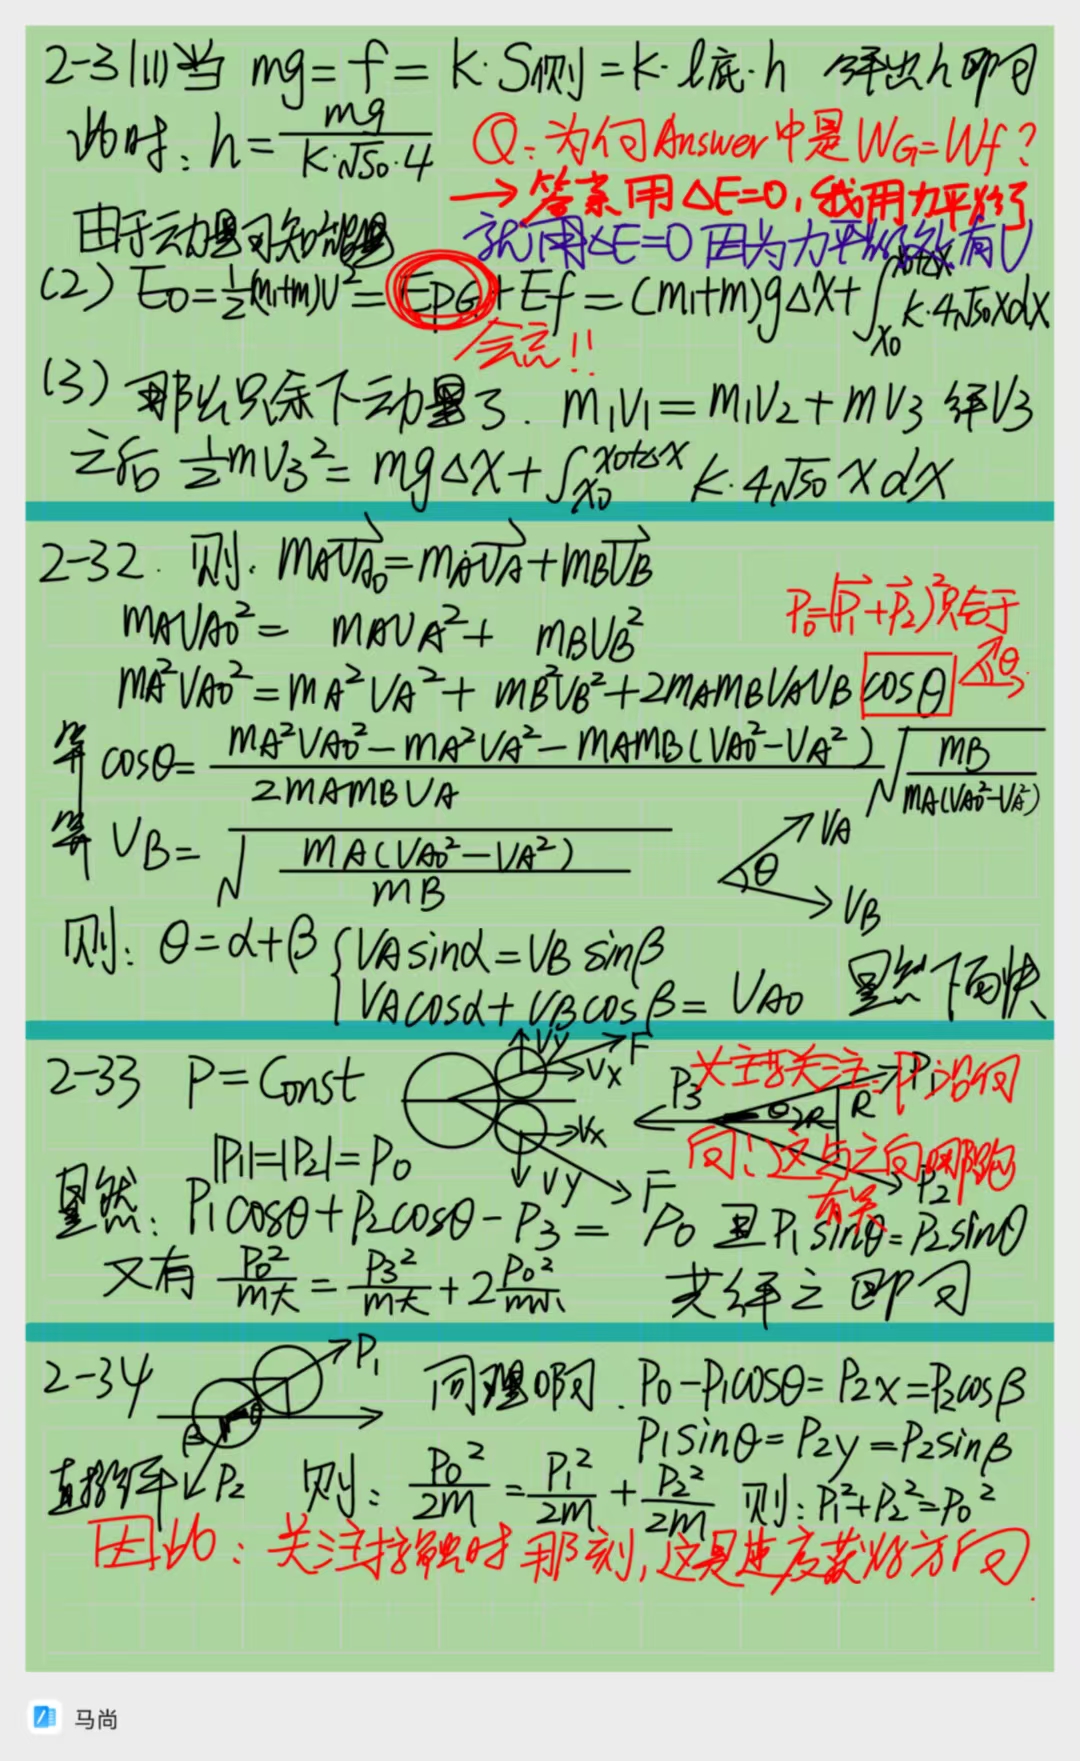 2-31(1)当 mg=f=k·S侧=k·l底·h 解出h即可
此时:h=mg/(k·√S0·4)
Q:为何Answer中是WG=Wf?
→答案用ΔE=0,我用力平衡了
就用ΔE=0因为力平衡必有V
由于动量可知能量
(2) E0=½(m1+m)V²=EPG+Ef=(m1+m)gΔx+∫x0^(x0+Δx) k·4√S0 xdx
会忘!!
(3) 那么只余下动量了. m1V1=m1V2+mV3 解V3
之后 ½mV3²=mgΔx+∫x0^(x0+Δx) k·4√S0 xdx
2-32. 则: mAvA0=mAvA+mBvB
mAVA0²= mAVA²+ mBVB²
P0=(P1+P2)²只合于
mA²VA0²=mA²VA²+mB²VB²+2mAmBVAVB cosθ
θ
等 cosθ=(mA²VA0²-mA²VA²-mAmB(VA0²-VA²))/(2mAmBVA) √(mB/(mA(VA0²-VA²)))
等 VB=√(mA(VA0²-VA²)/mB)
VA
θ
VB
则:θ=α+β {VA sinα=VB sinβ
VA cosα+VB cosβ=VA0 显然下面快
2-33 P=Const
Vy F Vx
Vx Vy F
P3 P1 θ 2R R P2
关注要关注:P沿何
向!这与之向哪跑
有关
|P1|=|P2|=P0
显然:P1cosθ+P2cosθ-P3=P0 且P1sinθ=P2sinθ
又有 P0²/m大=P3²/m大+2P0²/m小 共解之即可
2-34 P1 θ β P2
同理啊.P0-P1cosθ=P2x=P2cosβ
P1sinθ=P2y=P2sinβ
直接解 则:P0²/2m=P1²/2m+P2²/2m 则:P1²+P2²=P0²
因此:关注接触时那刻,这是速度获将方向.
马尚